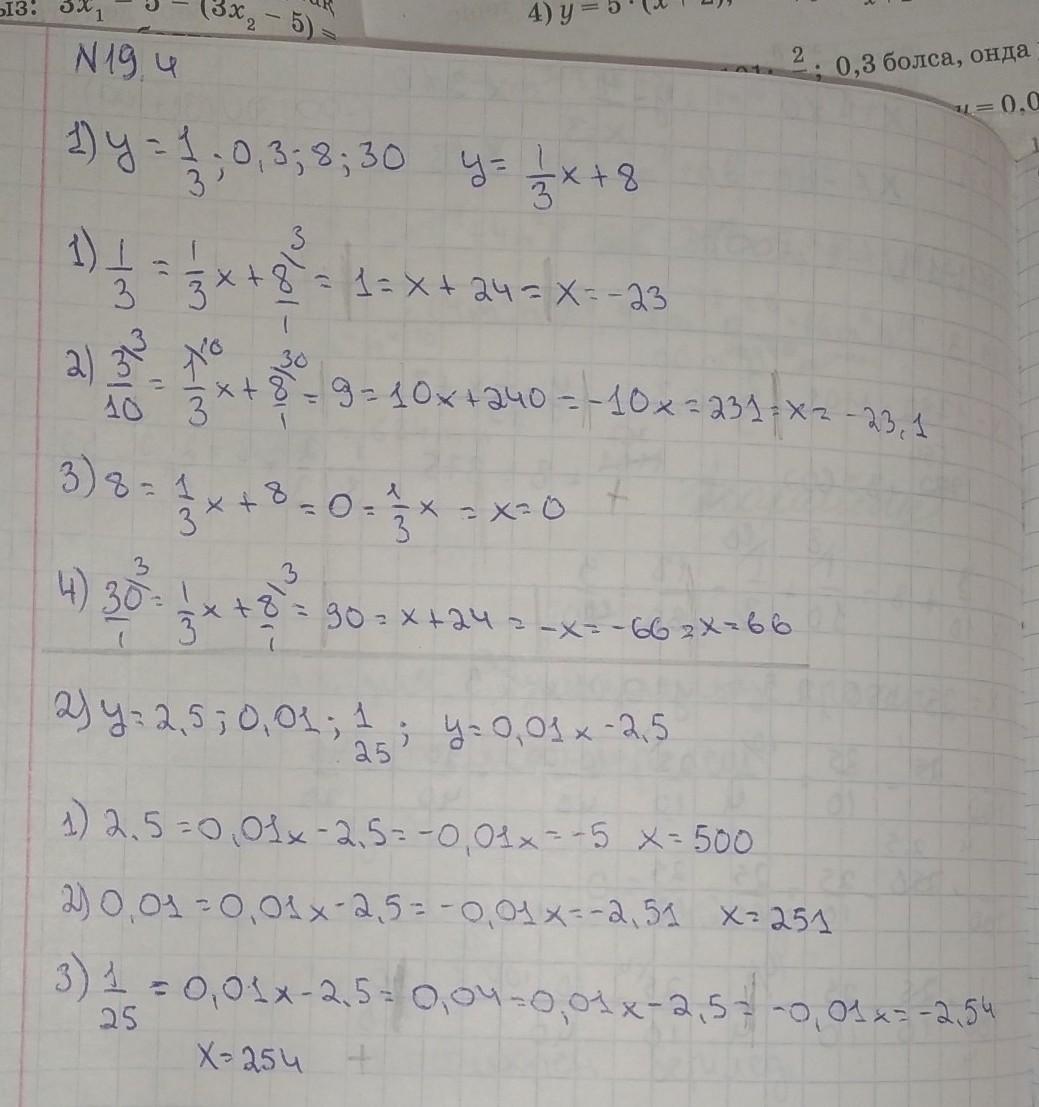 ыз: 3x₁ - 5 - (3x₂ - 5) =
4) y = 5 · (x
2/ ; 0,3 болса, онда
= 0,0
N19.4
1) y = 1/3; 0,3; 8; 30 y = 1/3 x + 8
1) 1/3 = 1/3 x + 8/1 ³ = 1 = x + 24 = x = -23
2) 3/10 ³ = 1/3 ¹⁰ x + 8/1 ³⁰ = 9 = 10x + 240 = -10x = 231 = x = -23,1
3) 8 = 1/3 x + 8 = 0 = 1/3 x = x = 0
4) 30/1 ³ = 1/3 x + 8/1 ³ = 90 = x + 24 = -x = -66 = x = 66
2) y = 2,5; 0,01; 1/25; y = 0,01x - 2,5
1) 2,5 = 0,01x - 2,5 = -0,01x = -5 x = 500
2) 0,01 = 0,01x - 2,5 = -0,01x = -2,51 x = 251
3) 1/25 = 0,01x - 2,5 = 0,04 = 0,01x - 2,5 = -0,01x = -2,54
x = 254